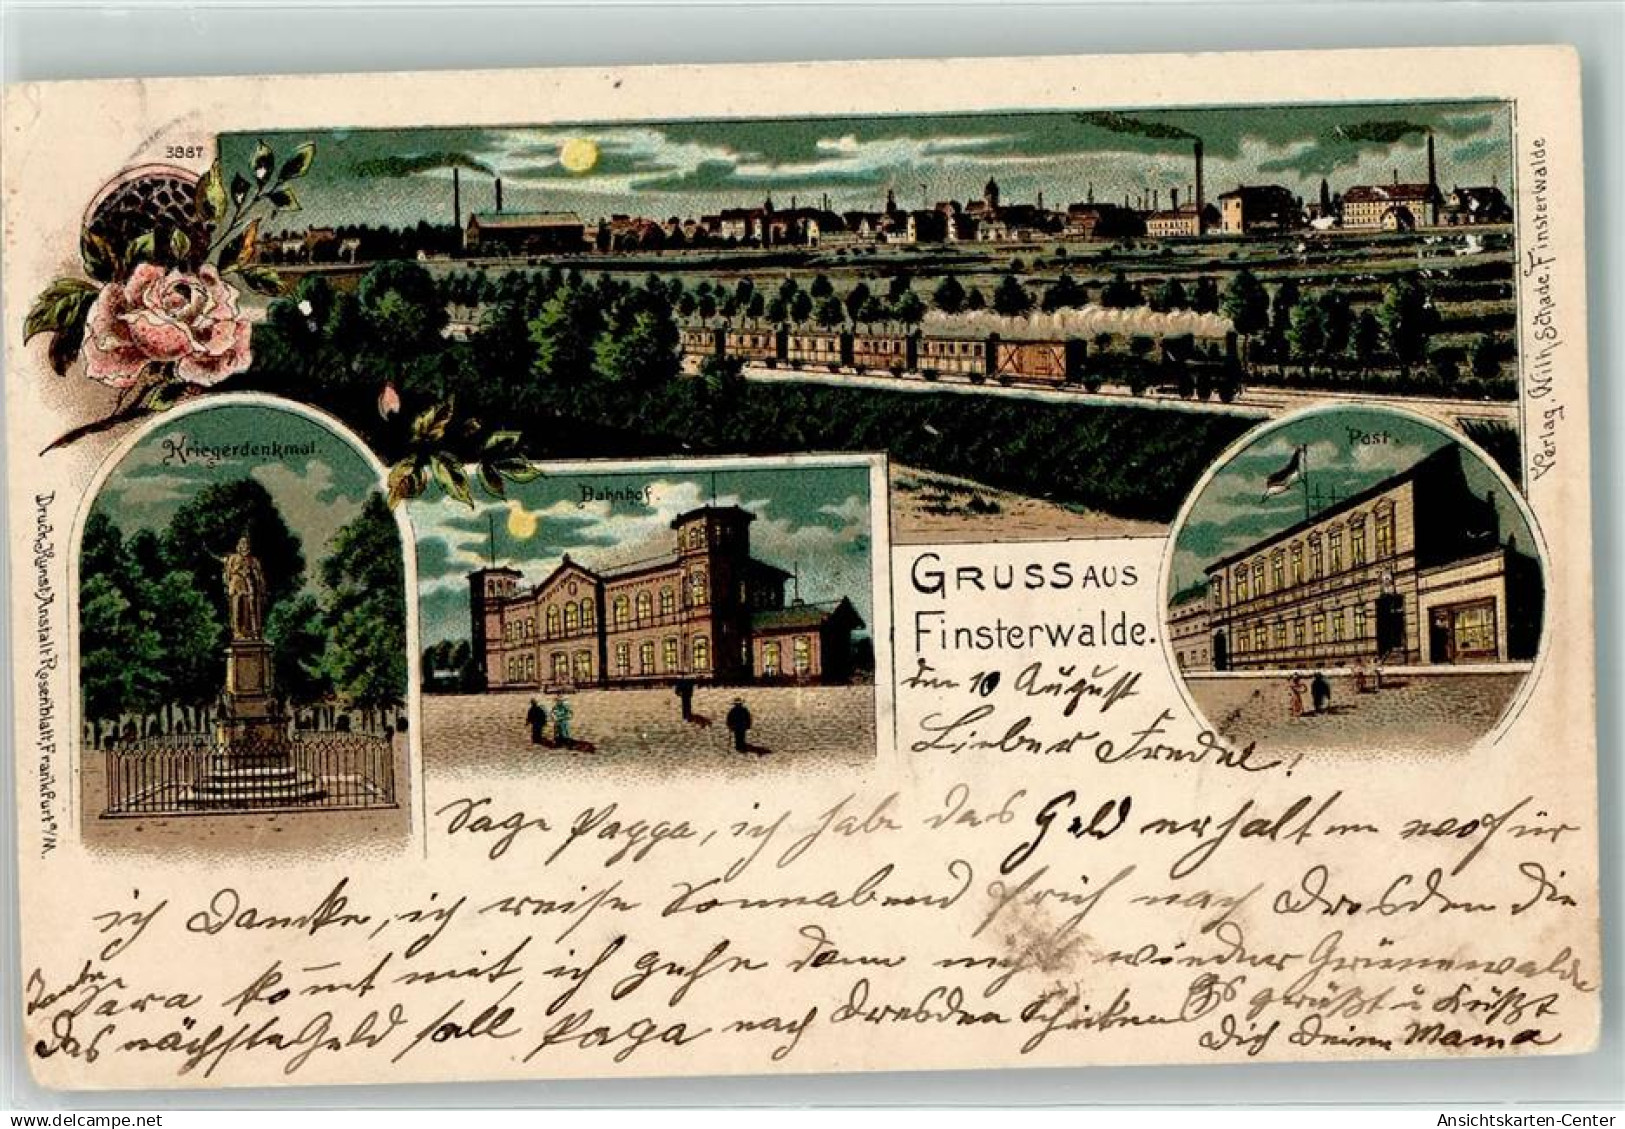 3887
Kriegerdenkmal.
Bahnhof.
Post.
Verlag, Wilh. Schade, Finsterwalde
Druck, Kunst-Anstalt Rosenblatt, Frankfurt a/M.
GRUSS AUS
Finsterwalde.
den 10 August
Lieber Fredel!
Sage Pappa, ich habe das Geld erhalten wofür
ich Dancke, ich reise Sonnabend früh nach Dresden die
Tante Sara kommt mit, ich gehe dann nicht wieder Grünewalde
das nächste Geld soll Papa nach Dresden Schicken Es Grüßt u Küßt
Dich Deine Mama
Ansichtskarten-Center